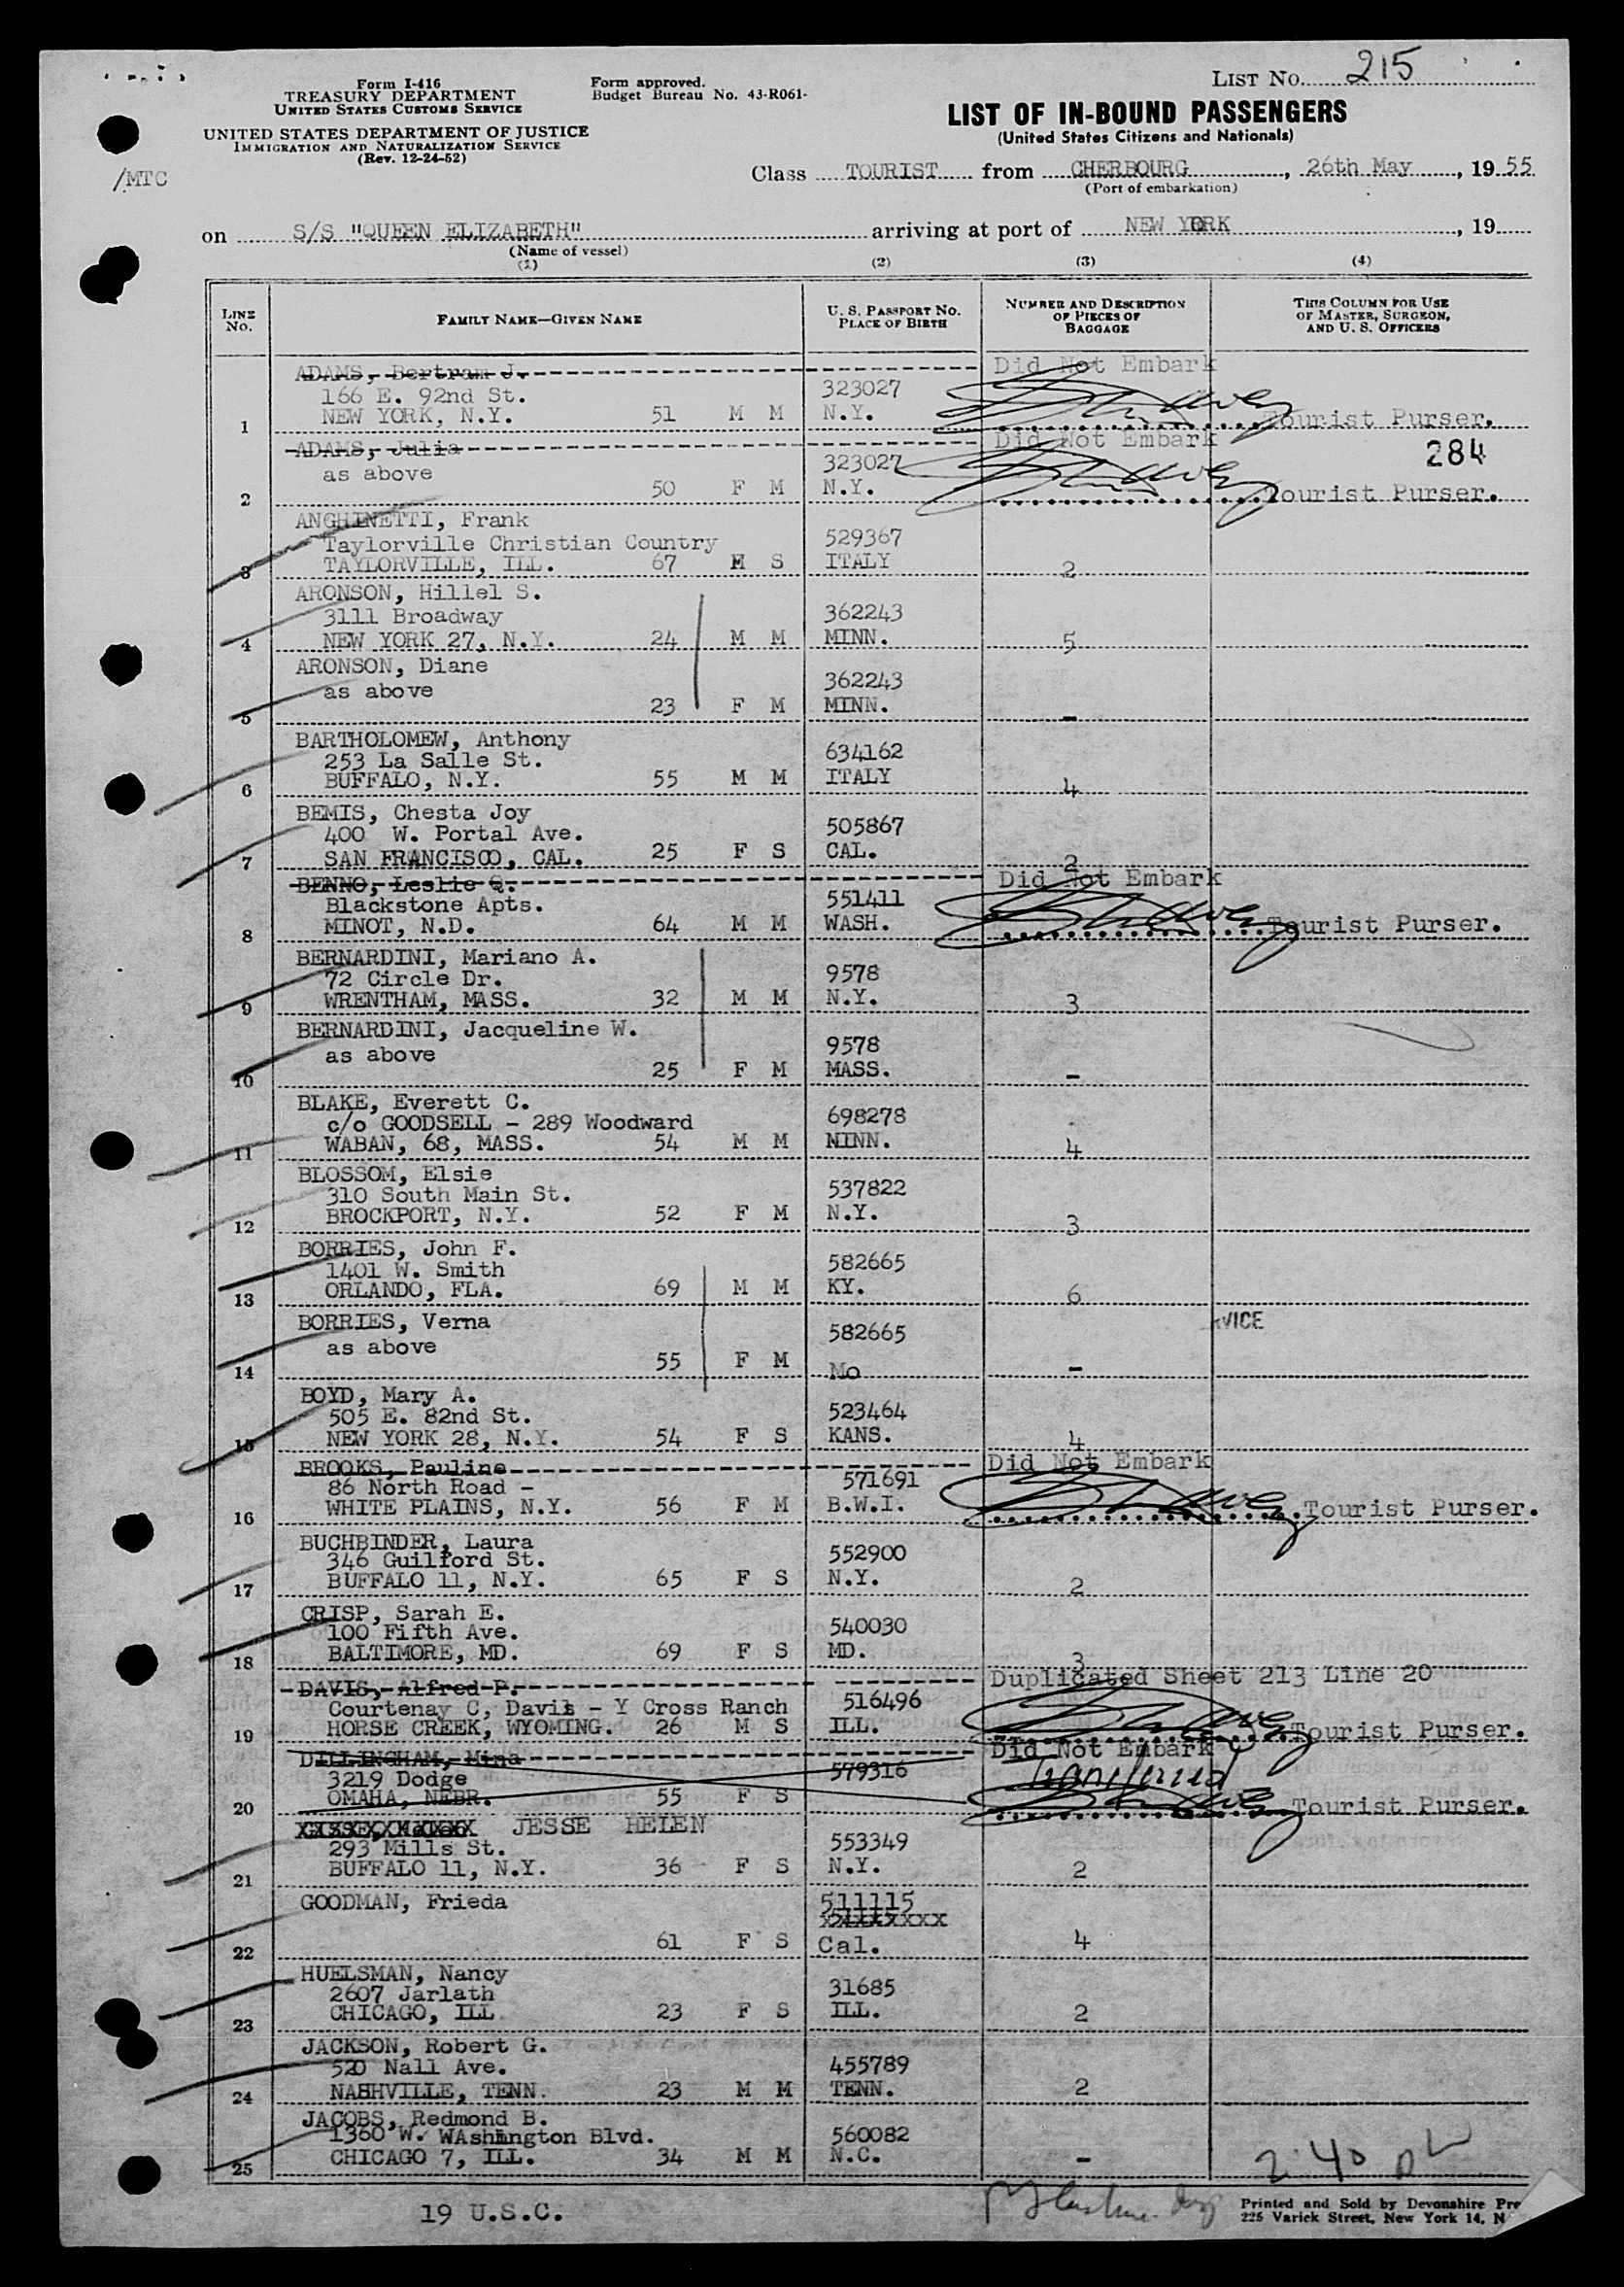 LIST NO. 215
Form I-416
TREASURY DEPARTMENT
UNITED STATES CUSTOMS SERVICE
Form approved.
Budget Bureau No. 43-R061-
UNITED STATES DEPARTMENT OF JUSTICE
IMMIGRATION AND NATURALIZATION SERVICE
(Rev. 12-24-52)
/MTC
LIST OF IN-BOUND PASSENGERS
(United States Citizens and Nationals)
Class TOURIST from CHERBOURG, 26th May, 1955
(Port of embarkation)
on S/S "QUEEN ELIZABETH" arriving at port of NEW YORK, 19
(Name of vessel)
(1) (2) (3) (4)
LINE NO. FAMILY NAME—GIVEN NAME U. S. PASSPORT NO. PLACE OF BIRTH NUMBER AND DESCRIPTION OF PIECES OF BAGGAGE THIS COLUMN FOR USE OF MASTER, SURGEON, AND U. S. OFFICERS
ADAMS, Bertram J. Did Not Embark
166 E. 92nd St. 323027
1 NEW YORK, N.Y. 51 M M N.Y. Tourist Purser.
ADAMS, Julia Did Not Embark 284
as above 323027
2 50 F M N.Y. Tourist Purser.
ANGHINETTI, Frank
Taylorville Christian Country 529367
3 TAYLORVILLE, ILL. 67 M S ITALY 2
ARONSON, Hillel S.
3111 Broadway 362243
4 NEW YORK 27, N.Y. 24 M M MINN. 5
ARONSON, Diane
as above 362243
5 23 F M MINN. -
BARTHOLOMEW, Anthony
253 La Salle St. 634162
6 BUFFALO, N.Y. 55 M M ITALY 4
BEMIS, Chesta Joy
400 W. Portal Ave. 505867
7 SAN FRANCISCO, CAL. 25 F S CAL. 2
BENNO, Leslie Q. Did Not Embark
Blackstone Apts. 551411
8 MINOT, N.D. 64 M M WASH. Tourist Purser.
BERNARDINI, Mariano A.
72 Circle Dr. 9578
9 WRENTHAM, MASS. 32 M M N.Y. 3
BERNARDINI, Jacqueline W.
as above 9578
10 25 F M MASS. -
BLAKE, Everett C.
c/o GOODSELL - 289 Woodward 698278
11 WABAN, 68, MASS. 54 M M MINN. 4
BLOSSOM, Elsie
310 South Main St. 537822
12 BROCKPORT, N.Y. 52 F M N.Y. 3
BORRIES, John F.
1401 W. Smith 582665
13 ORLANDO, FLA. 69 M M KY. 6
BORRIES, Verna VICE
as above 582665
14 55 F M Mo -
BOYD, Mary A.
505 E. 82nd St. 523464
15 NEW YORK 28, N.Y. 54 F S KANS. 4
BROOKS, Pauline Did Not Embark
86 North Road - 571691
16 WHITE PLAINS, N.Y. 56 F M B.W.I. Tourist Purser.
BUCHBINDER, Laura
346 Guilford St. 552900
17 BUFFALO 11, N.Y. 65 F S N.Y. 2
CRISP, Sarah E.
100 Fifth Ave. 540030
18 BALTIMORE, MD. 69 F S MD. 3
DAVIS, Alfred P. Duplicated Sheet 213 Line 20
Courtenay C, Davis - Y Cross Ranch 516496
19 HORSE CREEK, WYOMING. 26 M S ILL. Tourist Purser.
DILLINGHAM, Mina Did Not Embark
3219 Dodge 579316 Transferred
20 OMAHA, NEBR. 55 F S Tourist Purser.
JESSE HELEN
293 Mills St. 553349
21 BUFFALO 11, N.Y. 36 F S N.Y. 2
GOODMAN, Frieda 511115
22 61 F S Cal. 4
HUELSMAN, Nancy
2607 Jarlath 31685
23 CHICAGO, ILL 23 F S ILL. 2
JACKSON, Robert G.
520 Nall Ave. 455789
24 NASHVILLE, TENN. 23 M M TENN. 2
JACOBS, Redmond B.
1360 W. WAshington Blvd. 560082
25 CHICAGO 7, ILL. 34 M M N.C. -
2 40
19 U.S.C.
Printed and Sold by Devonshire Pre
225 Varick Street, New York 14, N